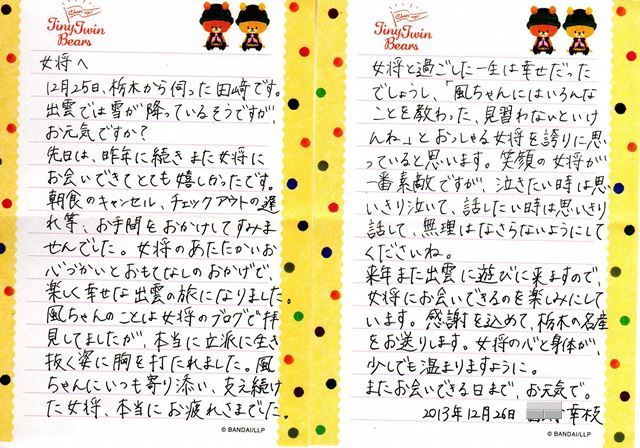 Cheer up!
Tiny Twin
Bears
女将へ
12月25日、栃木から伺った田崎です。
出雲では雪が降っているそうですが、
お元気ですか?
先日は、昨年に続きまた女将に
お会いできてとても嬉しかったです。
朝食のキャンセル、チェックアウトの遅
れ等、お手間をおかけしてすみま
せんでした。女将のあたたかいお
心づかいとおもてなしのおかげで、
楽しく幸せな出雲の旅になりました。
風ちゃんのことは女将のブログで拝
見してましたが、本当に立派に生き
抜く姿に胸を打たれました。風
ちゃんにいつも寄り添い、支え続け
た女将、本当にお疲れさまでした。
© BANDAI/LLP
Cheer up!
Tiny Twin
Bears
女将と過ごした一生は幸せだった
でしょうし、「風ちゃんにはいろんな
ことを教わった、見習わないといけ
んね」とおっしゃる女将を誇りに思
っていると思います。笑顔の女将が
一番素敵ですが、泣きたい時は思
いきり泣いて、話したい時は思いきり
話して、無理はなさらないようにして
くださいね。
来年また出雲に遊びに来ますので、
女将にお会いできるのを楽しみにして
います。感謝を込めて、栃木の名産
をお送りします。女将の心と身体が、
少しでも温まりますように。
またお会いできる日まで、お元気で。
2013年12月26日 幸枝
© BANDAI/LLP